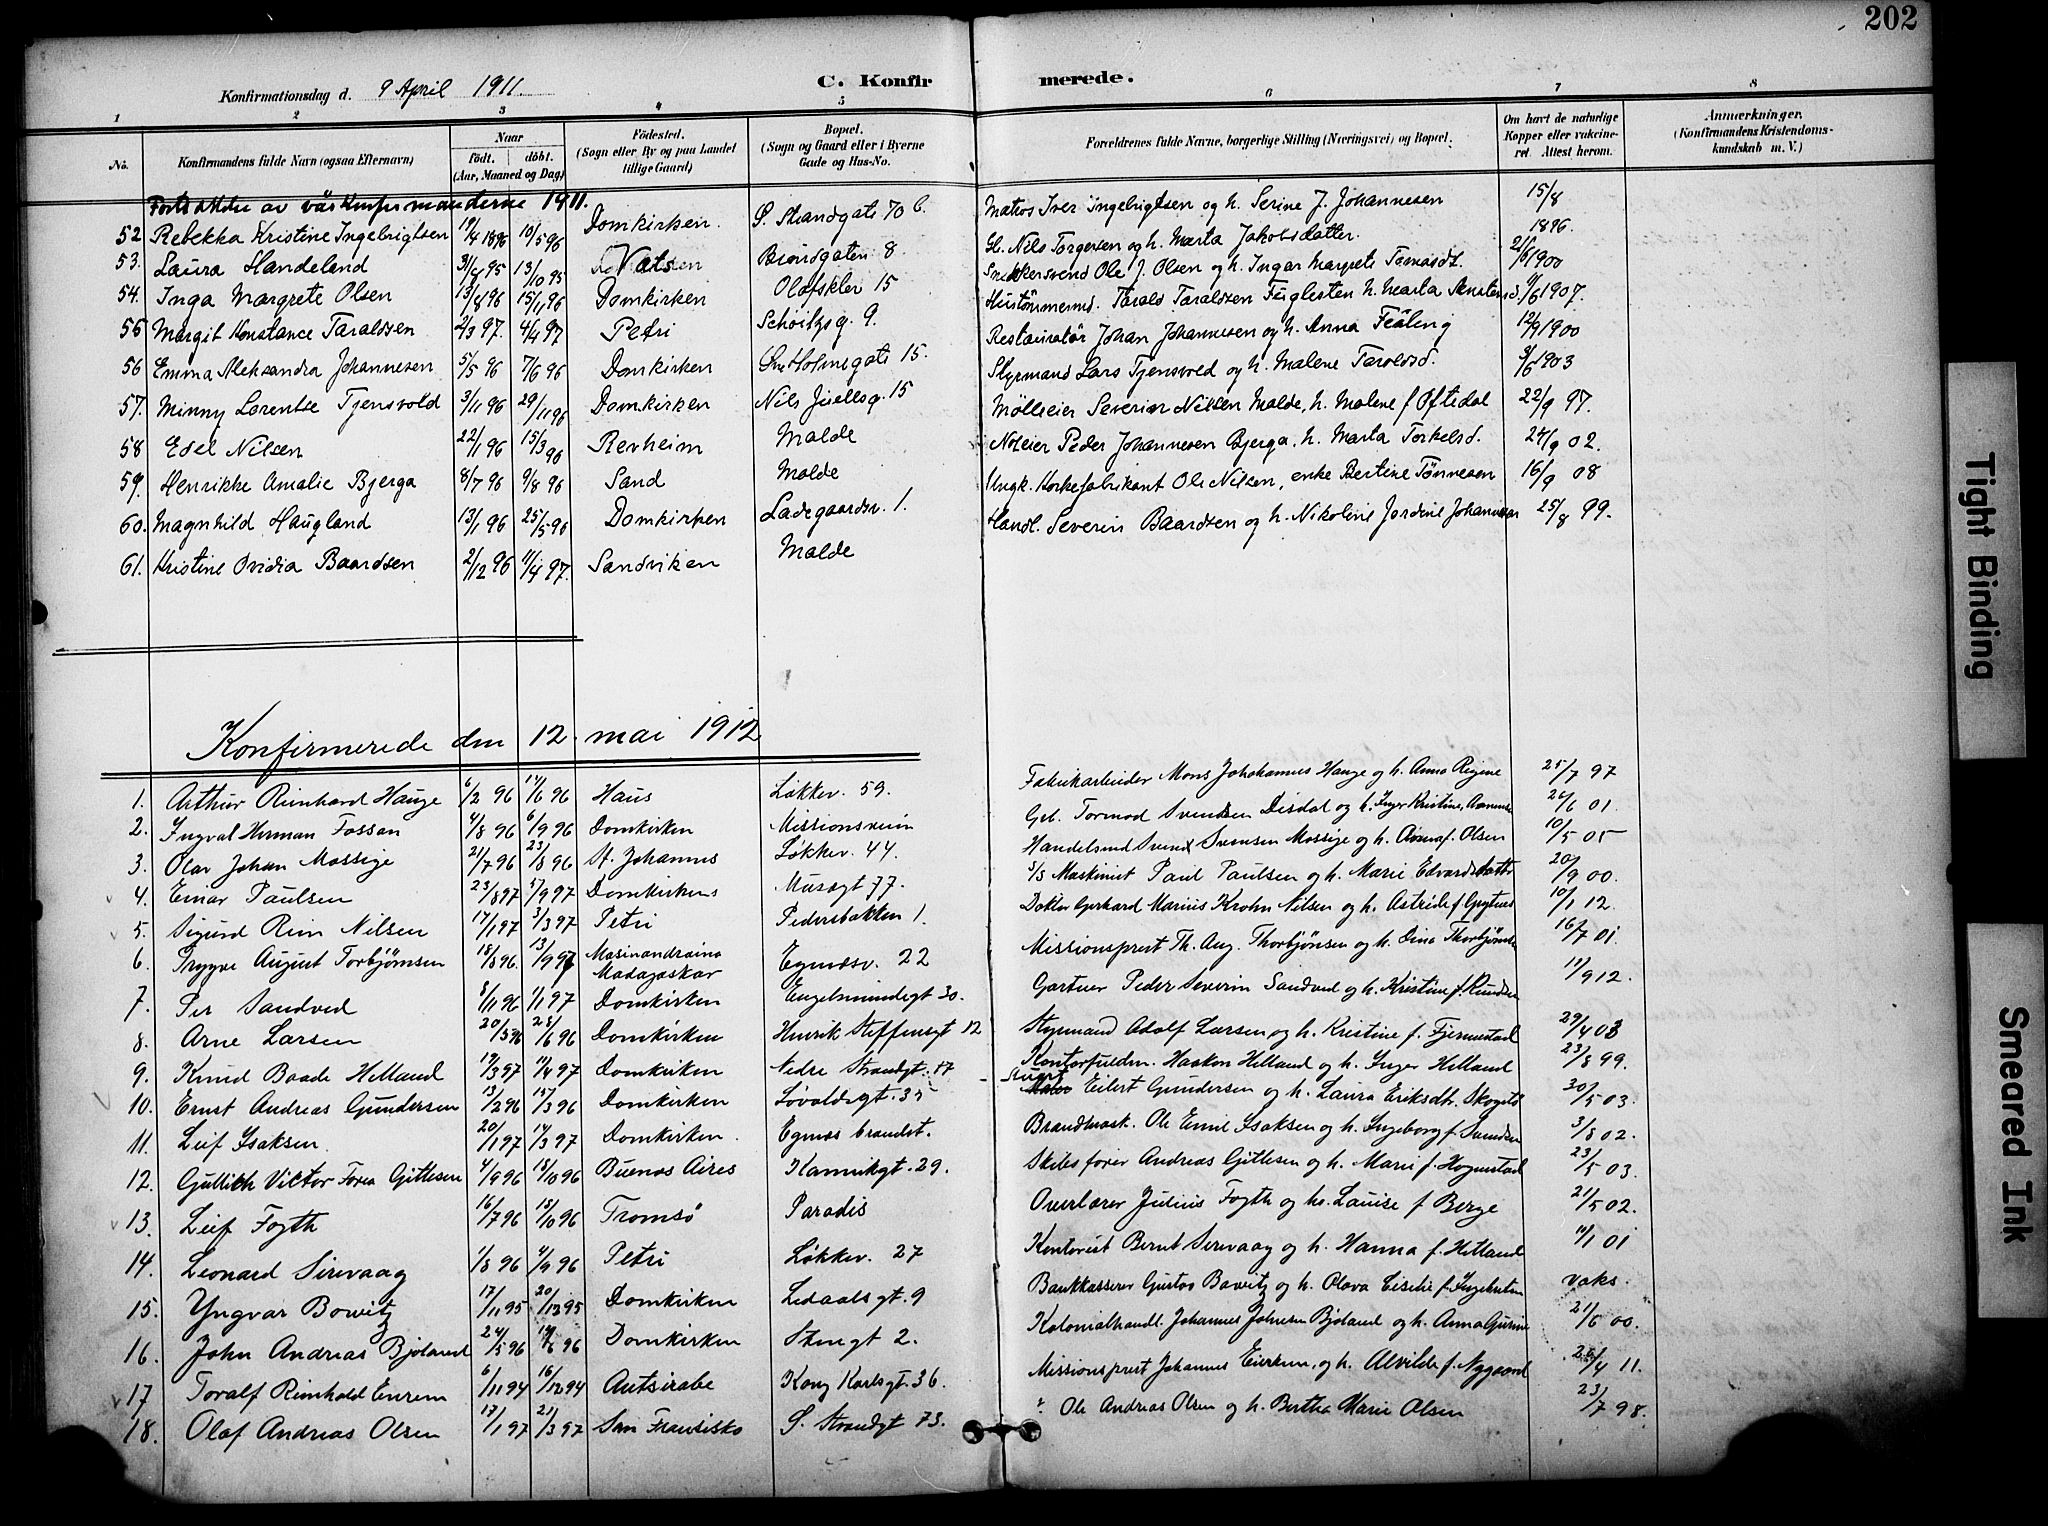 202
Konfirmationsdag d. 9 April 1911.
C. Konfirmerede.
1 2 3 4 5 6 7 8
No. Konfirmandens fulde Navn (ogsaa Efternavn) Naar födt. döbt. (Aar, Maaned og Dag) Födested. (Sogn eller By og paa Landet tillige Gaard) Bopæl. (Sogn og Gaard eller i Byerne Gade og Hus-No. Forældrenes fulde Navne, borgerlige Stilling (Næringsvei) og Bopæl. Om havt de naturlige Kopper eller vakcineret. Attest herom. Anmærkninger. (Konfirmandens Kristendomskundskab m. V.)
av vårkonfirmanderne 1911.
52 Rebekka Kristine Ingebrigtsen 19/4 1896 10/5 96 Domkirken. S. Strandgate 70 b. Matros Iver Ingebrigtsen og h. Serine J. Johannesen 15/8 1896.
53. Laura Handeland 31/8 95 13/10 95 Vats Brondgaten 8 Nils Torgersen og h. Marta Jakobsdatter. 21/6 1900
54. Inga Margrete Olsen 13/8 96 15/11 96 Domkirken Olafskler 15 Snekkersvend Ole J. Olsen og h. Ingar Margrete Tomasdt. 11/6 1907.
55 Margit Konstance Taraldsen 2/3 97. 4/4 97 Petri Schöitzsg. 9. Hustömmermd. Tarald Taraldsen Fuglesten h. Marta
56 Emma Aleksandra Johannesen 5/5 96 7/6 96 Domkirken Holmegate 15. Restauratör Johan Johannesen og h. Anna 12/9 1900
57. Minny Lorentse Tjensvold 3/11 96 29/11 96 Domkirken Nils Juellsg. 15 Styrmand Lars Tjensvold og h. Malene Taroldsd. 3/6 1903
58 Edel Nilsen 22/1 96 15/3 96 Revheim Malde Mölleier Severin Nilsen Malde, h. Malene f Oftedal 22/9 97.
59. Henrikke Amalie Bjerga 8/7 96 9/8 96 Sand Malde Noteier Peder Johannesen Bjerga, h. Marta Torkelsd. 24/9 02.
60. Magnhild Haugland 13/1 96 25/5 96 Domkirken Ladegaardsv. 1. Ungk. Korkefabrikant Ole Nilsen, enke Bertine Tönnesen 16/9 08
61. Kristine Ovidia Baardsen 2/12 96 11/4 97. Sandviken Malde Handl. Severin Baardsen og h. Nikoline Jordine Johannesen 25/8 99.
Konfirmerede den 12. mai 1912
1. Arthur Reinhard Hauge 6/2 96 14/6 96 Haus Løkkev. 59. Fabrikarbeider Mons Johannes Hauge og h. Anna Regine 25/7 97
2. Ingval Herman Fossan 4/8 96 6/9 96 Domkirken Missionsveien Tormod Svendsen Disdal og h. Inger Kristine 26/6 01.
3. Olav Johan Mossige 21/7 96 23/8 96 St. Johannes Løkkev. 44. Handelsmd Svend Svensen Mossige og h. Anna f. Olsen 10/5 05
4. Einar Paulsen 23/8 97 5/9 97 Domkirkens Musegt 77. S/S Maskinist Paul Paulsen og h. Marie Edvardsdatter 20/9 00.
5. Sigurd Rein Nilsen 17/1 97 3/3 97 Petri Pedersbakken 1. Doktor Gerhard Marius Krohn Nilsen og h. Astride f. 10/1 12.
6. Trygve August Torbjørnsen 18/8 96. 13/9 96 Masinandraina Madagaskar Egnæsv. 22 Missionsprest Th. Aug. Thorbjönsen og h. Dina Thorbjørnsen 16/7 01.
7. Per Sandved 8/11 96 1/1 97 Domkirken Engelsmindegt 30. Gartner Peder Severin Sandved og h. Kristine f. 11/9 12.
8. Arne Larsen 20/5 96 28/6 96 Domkirken Henrik Steffensgt 12 Styrmand Adolf Larsen og h. Kristine f. Fjermestad 29/4 03
9. Knud Baade Helland 19/3 97 11/4 97 Domkirken Nedre Strandgt. 17 Kontorfuldm. Haakon Helland og h. Inger Helland 23/8 99.
10. Ernst Andreas Gundersen 13/2 96 15/3 96 Domkirken Løvoldsgt. 35 Eilert Gundersen og h. Laura Eriksdtr. 30/5 03.
11. Leif Isaksen. 20/1 97 14/3 97 Domkirken. Egnæs brandst. Brandmask. Ole Emil Isaksen og h. Ingeborg f. 3/8 02.
12. Gullich Victor Foren Gittlesen 4/9 96 18/10 96 Buenos Aires Kannikgt. 29. Skibsfører Andreas Gittlesen og h. Marie f. Hognestad 23/5 03.
13. Leif Fogth 16/7 96 18/10 96 Tromsø Paradis Overlærer Julius Fogth og h. Lauise f Berge 21/5 02.
14. Leonard Sirevaag 1/8 96 4/9 96 Petri Løkkev. 27 Kontorist Bernt Sirevaag og h. Hanna f. Hetland 11/1 01
15. Yngvar Bowitz 17/11 95 20/12 95 Domkirken Ledaalsgt. 9 Bankkasserer Gustav Bowitz og h. Olava Cicilie f. vaks.
16. John Andreas Bjøland 24/5 96 14/6 96 Domkirken Stengt 2. Kolonialhandl. Johannes Johnsen Bjøland og h. Anna Gurine 21/6 00.
17 Toralf Reinhold Einrem 6/11 94 16/12 94 Antsirabe Kong Karlsgt. 36. Missionsprest Johannes Einrem, og h. Alvilde f. Nygaard 25/4 11.
18. Olaf Andreas Olsen 17/1 97 21/3 97 San Fransisko S. Strandgt 73. Ole Andreas Olsen og h. Bertha Marie Olsen 23/7 98.
Tight Binding
Smeared Ink